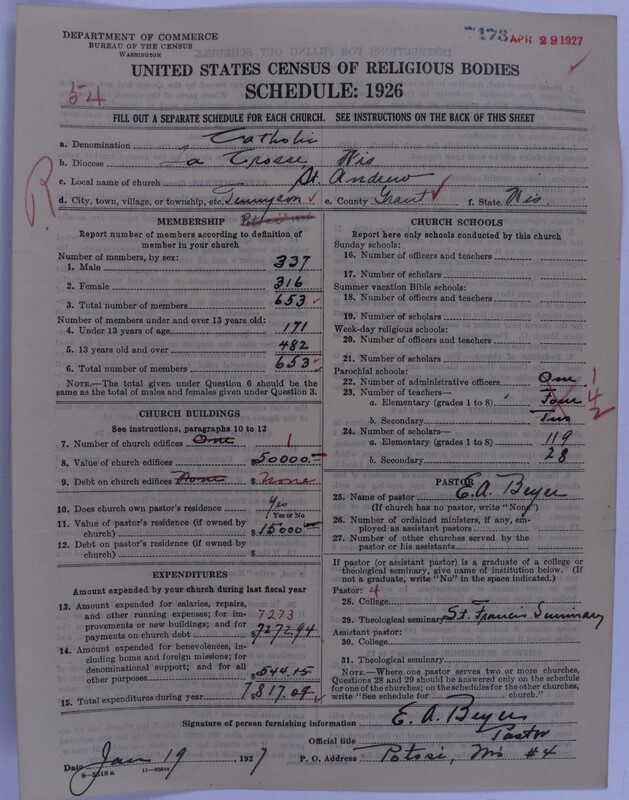 DEPARTMENT OF COMMERCE
BUREAU OF THE CENSUS
WASHINGTON
7173 APR 29 1927
UNITED STATES CENSUS OF RELIGIOUS BODIES
SCHEDULE: 1926
54
FILL OUT A SEPARATE SCHEDULE FOR EACH CHURCH. SEE INSTRUCTIONS ON THE BACK OF THIS SHEET
R
a. Denomination Catholic
b. Diocese La Crosse, Wis
c. Local name of church St. Andrew
d. City, town, village, or township, etc. Tennyson e. County Grant f. State Wis
MEMBERSHIP
Report number of members according to definition of member in your church
Number of members, by sex:
1. Male 337
2. Female 316
3. Total number of members 653
Number of members under and over 13 years old:
4. Under 13 years of age 171
5. 13 years old and over 482
6. Total number of members 653
NOTE.—The total given under Question 6 should be the same as the total of males and females given under Question 3.
CHURCH BUILDINGS
See instructions, paragraphs 10 to 12
7. Number of church edifices One 1
8. Value of church edifices $50000.—
9. Debt on church edifices None $ None
10. Does church own pastor's residence Yes
Yes or No
11. Value of pastor's residence (if owned by church) $15000
12. Debt on pastor's residence (if owned by church) $
EXPENDITURES
Amount expended by your church during last fiscal year
13. Amount expended for salaries, repairs, and other running expenses; for improvements or new buildings; and for payments on church debt 7273 $7272.94
14. Amount expended for benevolences, including home and foreign missions; for denominational support; and for all other purposes $544.15
15. Total expenditures during year 7817.09
CHURCH SCHOOLS
Report here only schools conducted by this church
Sunday schools:
16. Number of officers and teachers
17. Number of scholars
Summer vacation Bible schools:
18. Number of officers and teachers
19. Number of scholars
Week-day religious schools:
20. Number of officers and teachers
21. Number of scholars
Parochial schools:
22. Number of administrative officers One 1
23. Number of teachers—
a. Elementary (grades 1 to 8) Four 4
b. Secondary Two 2
24. Number of scholars—
a. Elementary (grades 1 to 8) 119
b. Secondary 28
PASTOR
25. Name of pastor E. A. Beyer
(If church has no pastor, write "None")
26. Number of ordained ministers, if any, employed as assistant pastors
27. Number of other churches served by the pastor or his assistants
If pastor (or assistant pastor) is a graduate of a college or theological seminary, give name of institution below. (If not a graduate, write "No" in the space indicated.)
Pastor: 4
28. College
29. Theological seminary St. Francis Seminary
Assistant pastor:
30. College
31. Theological seminary
NOTE.—Where one pastor serves two or more churches, Questions 28 and 29 should be answered only on the schedule for one of the churches; on the schedules for the other churches, write "See schedule for church."
Signature of person furnishing information E. A. Beyer
Official title Pastor
Date Jan 19, 1927 P. O. Address Potosi, Wis #4